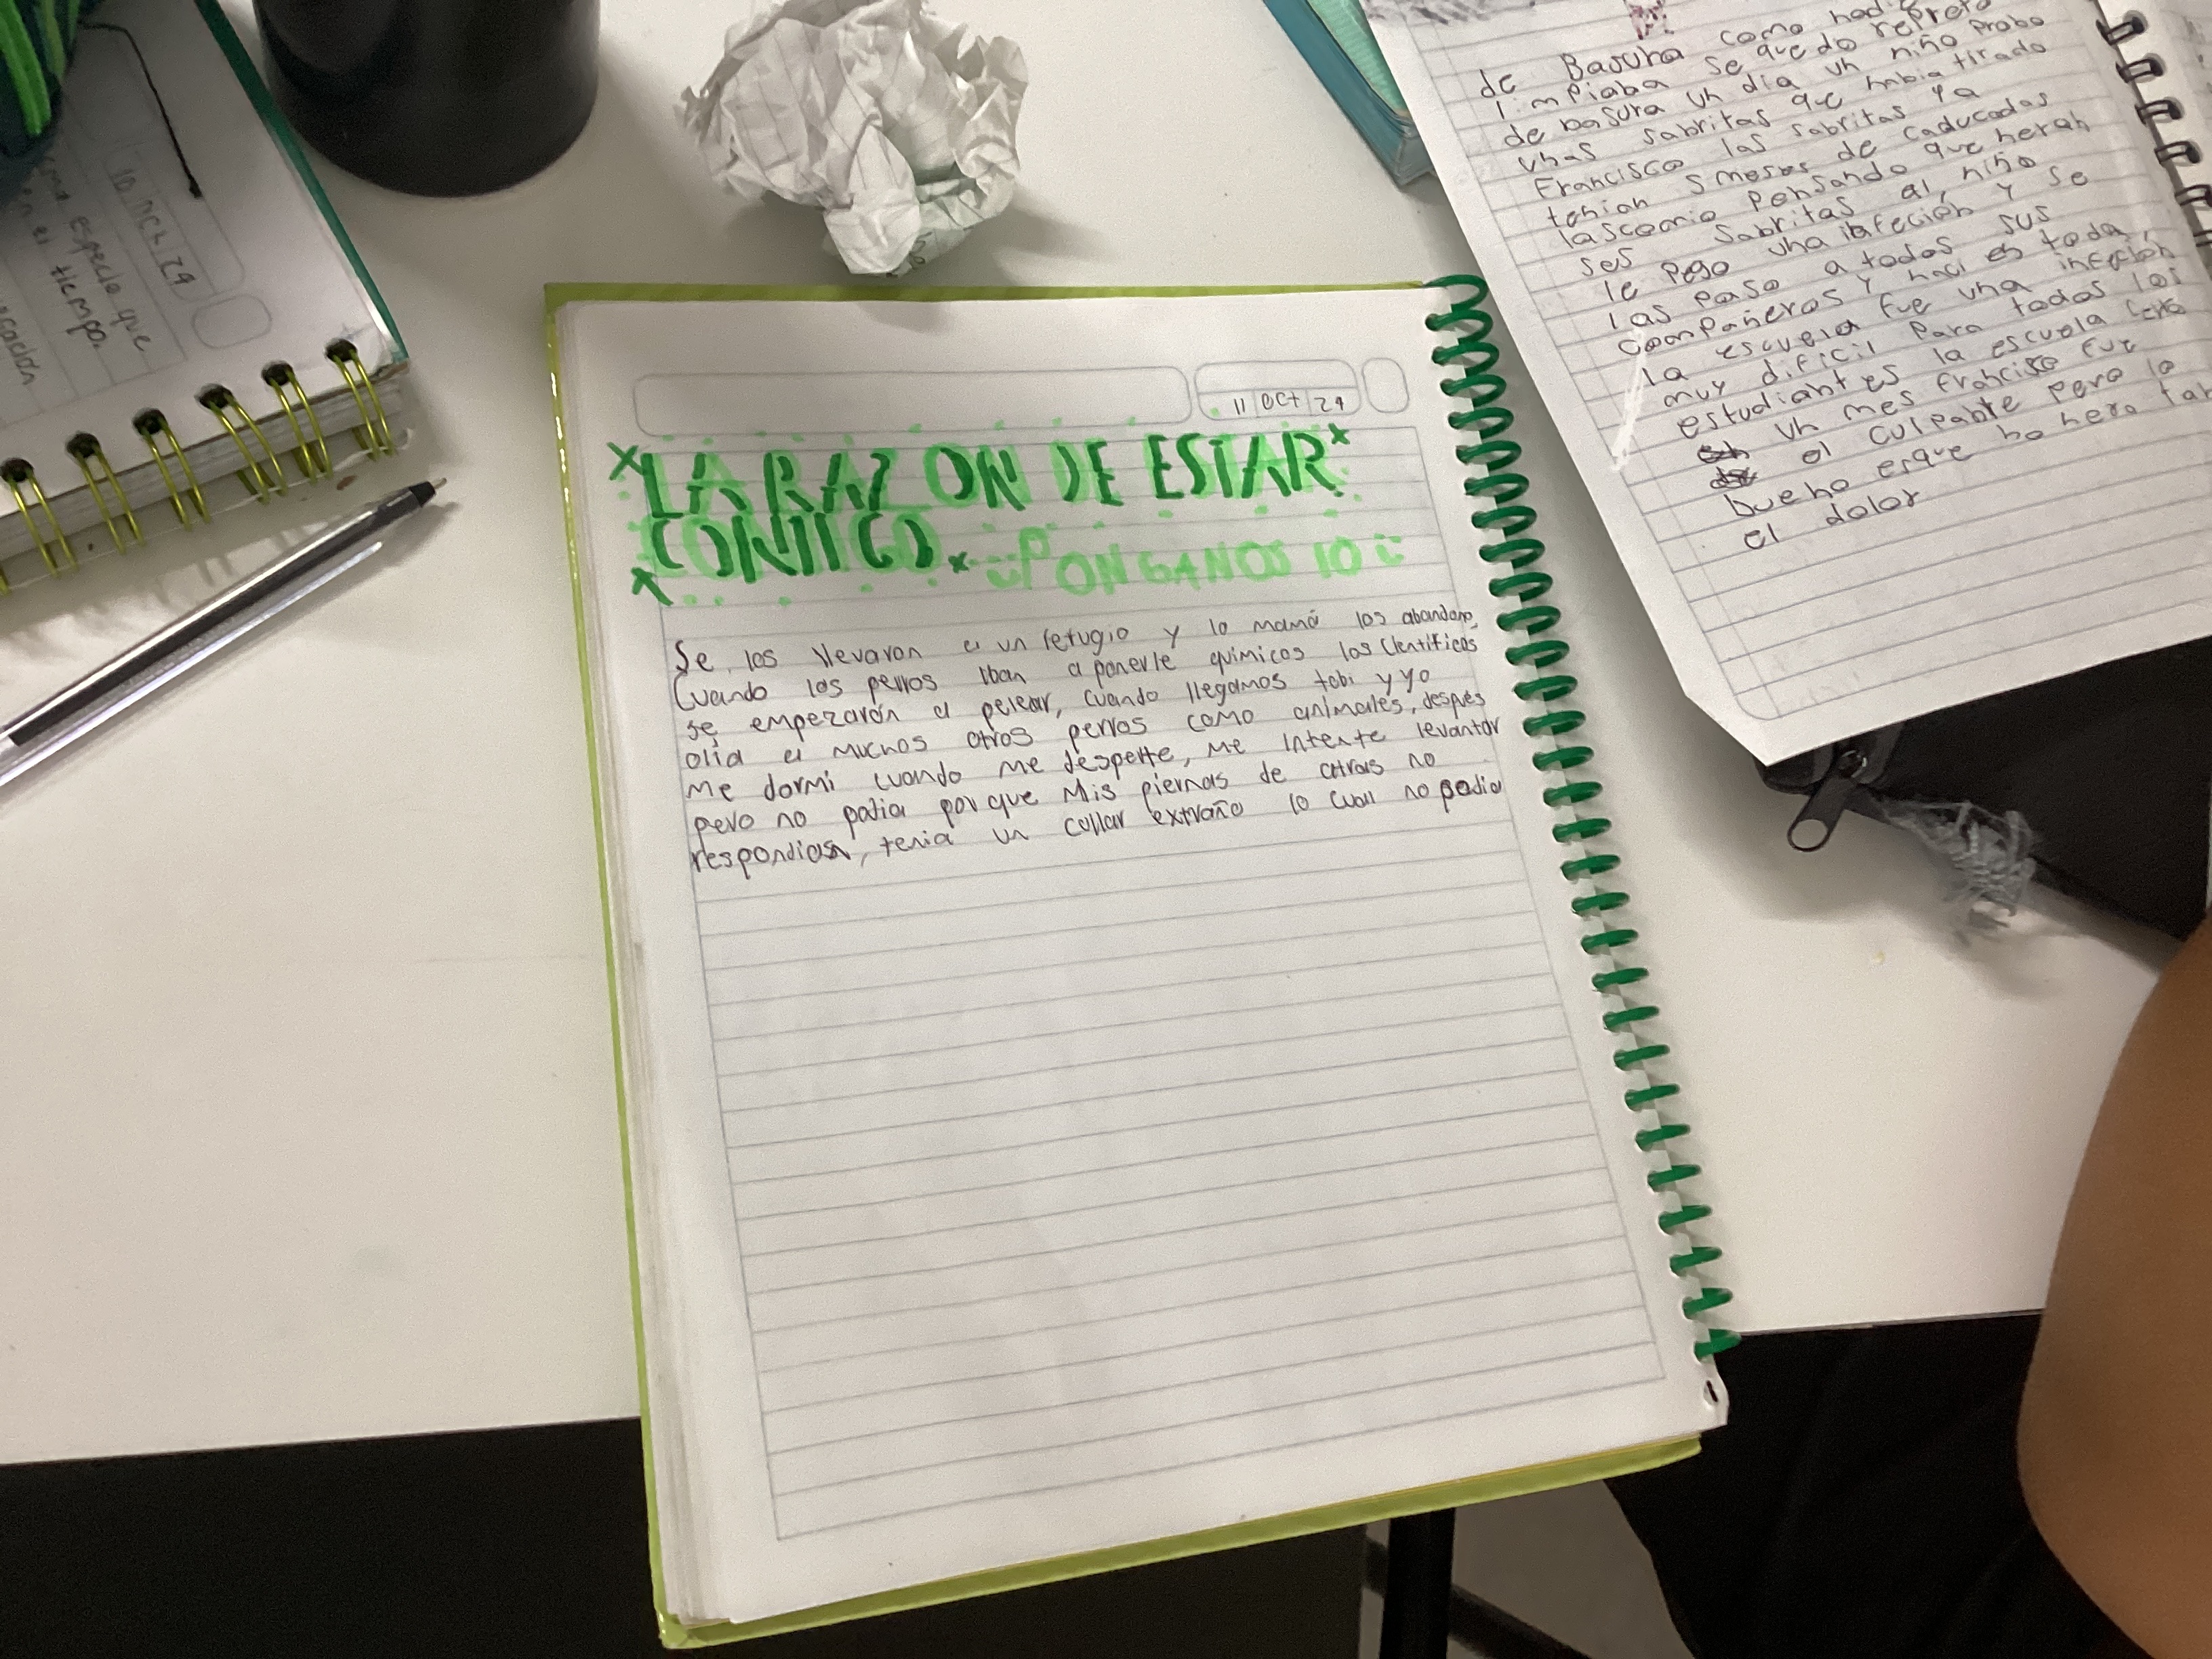 11 OCT 24
LA RAZON DE ESTAR
CONTIGO. PONGANOS 10
Se los llevaron a un refugio y la mamá los abandono,
Cuando los perros iban a ponerle químicos los Cientificos
se empezarón a pelear, cuando llegamos tobi y yo
olia a muchos otros perros como animales, después
me dormi cuando me desperte, me intente levantar
pero no podia porque mis piernas de atras no
respondian, tenia un collar extraño lo cual no podia
de Basura como nadie
limpiaba se quedo repreto
de basura un dia un niño probo
unas sabritas que habia tirado
Francisco las sabritas ya
tenian 5 meses de caducadas
lascomio pensando que heran
ses sabritas al, niño
le pego una infeción y se
las paso a todos sus
compañeros y haci en toda
la escuela fue una infeción
muy dificil para todos los
estudiantes la escuela
un mes francisco fue
el culpante pero lo
bueno esque no hera tan
el dolor
10 OCT 24
especie que
en el tiempo.